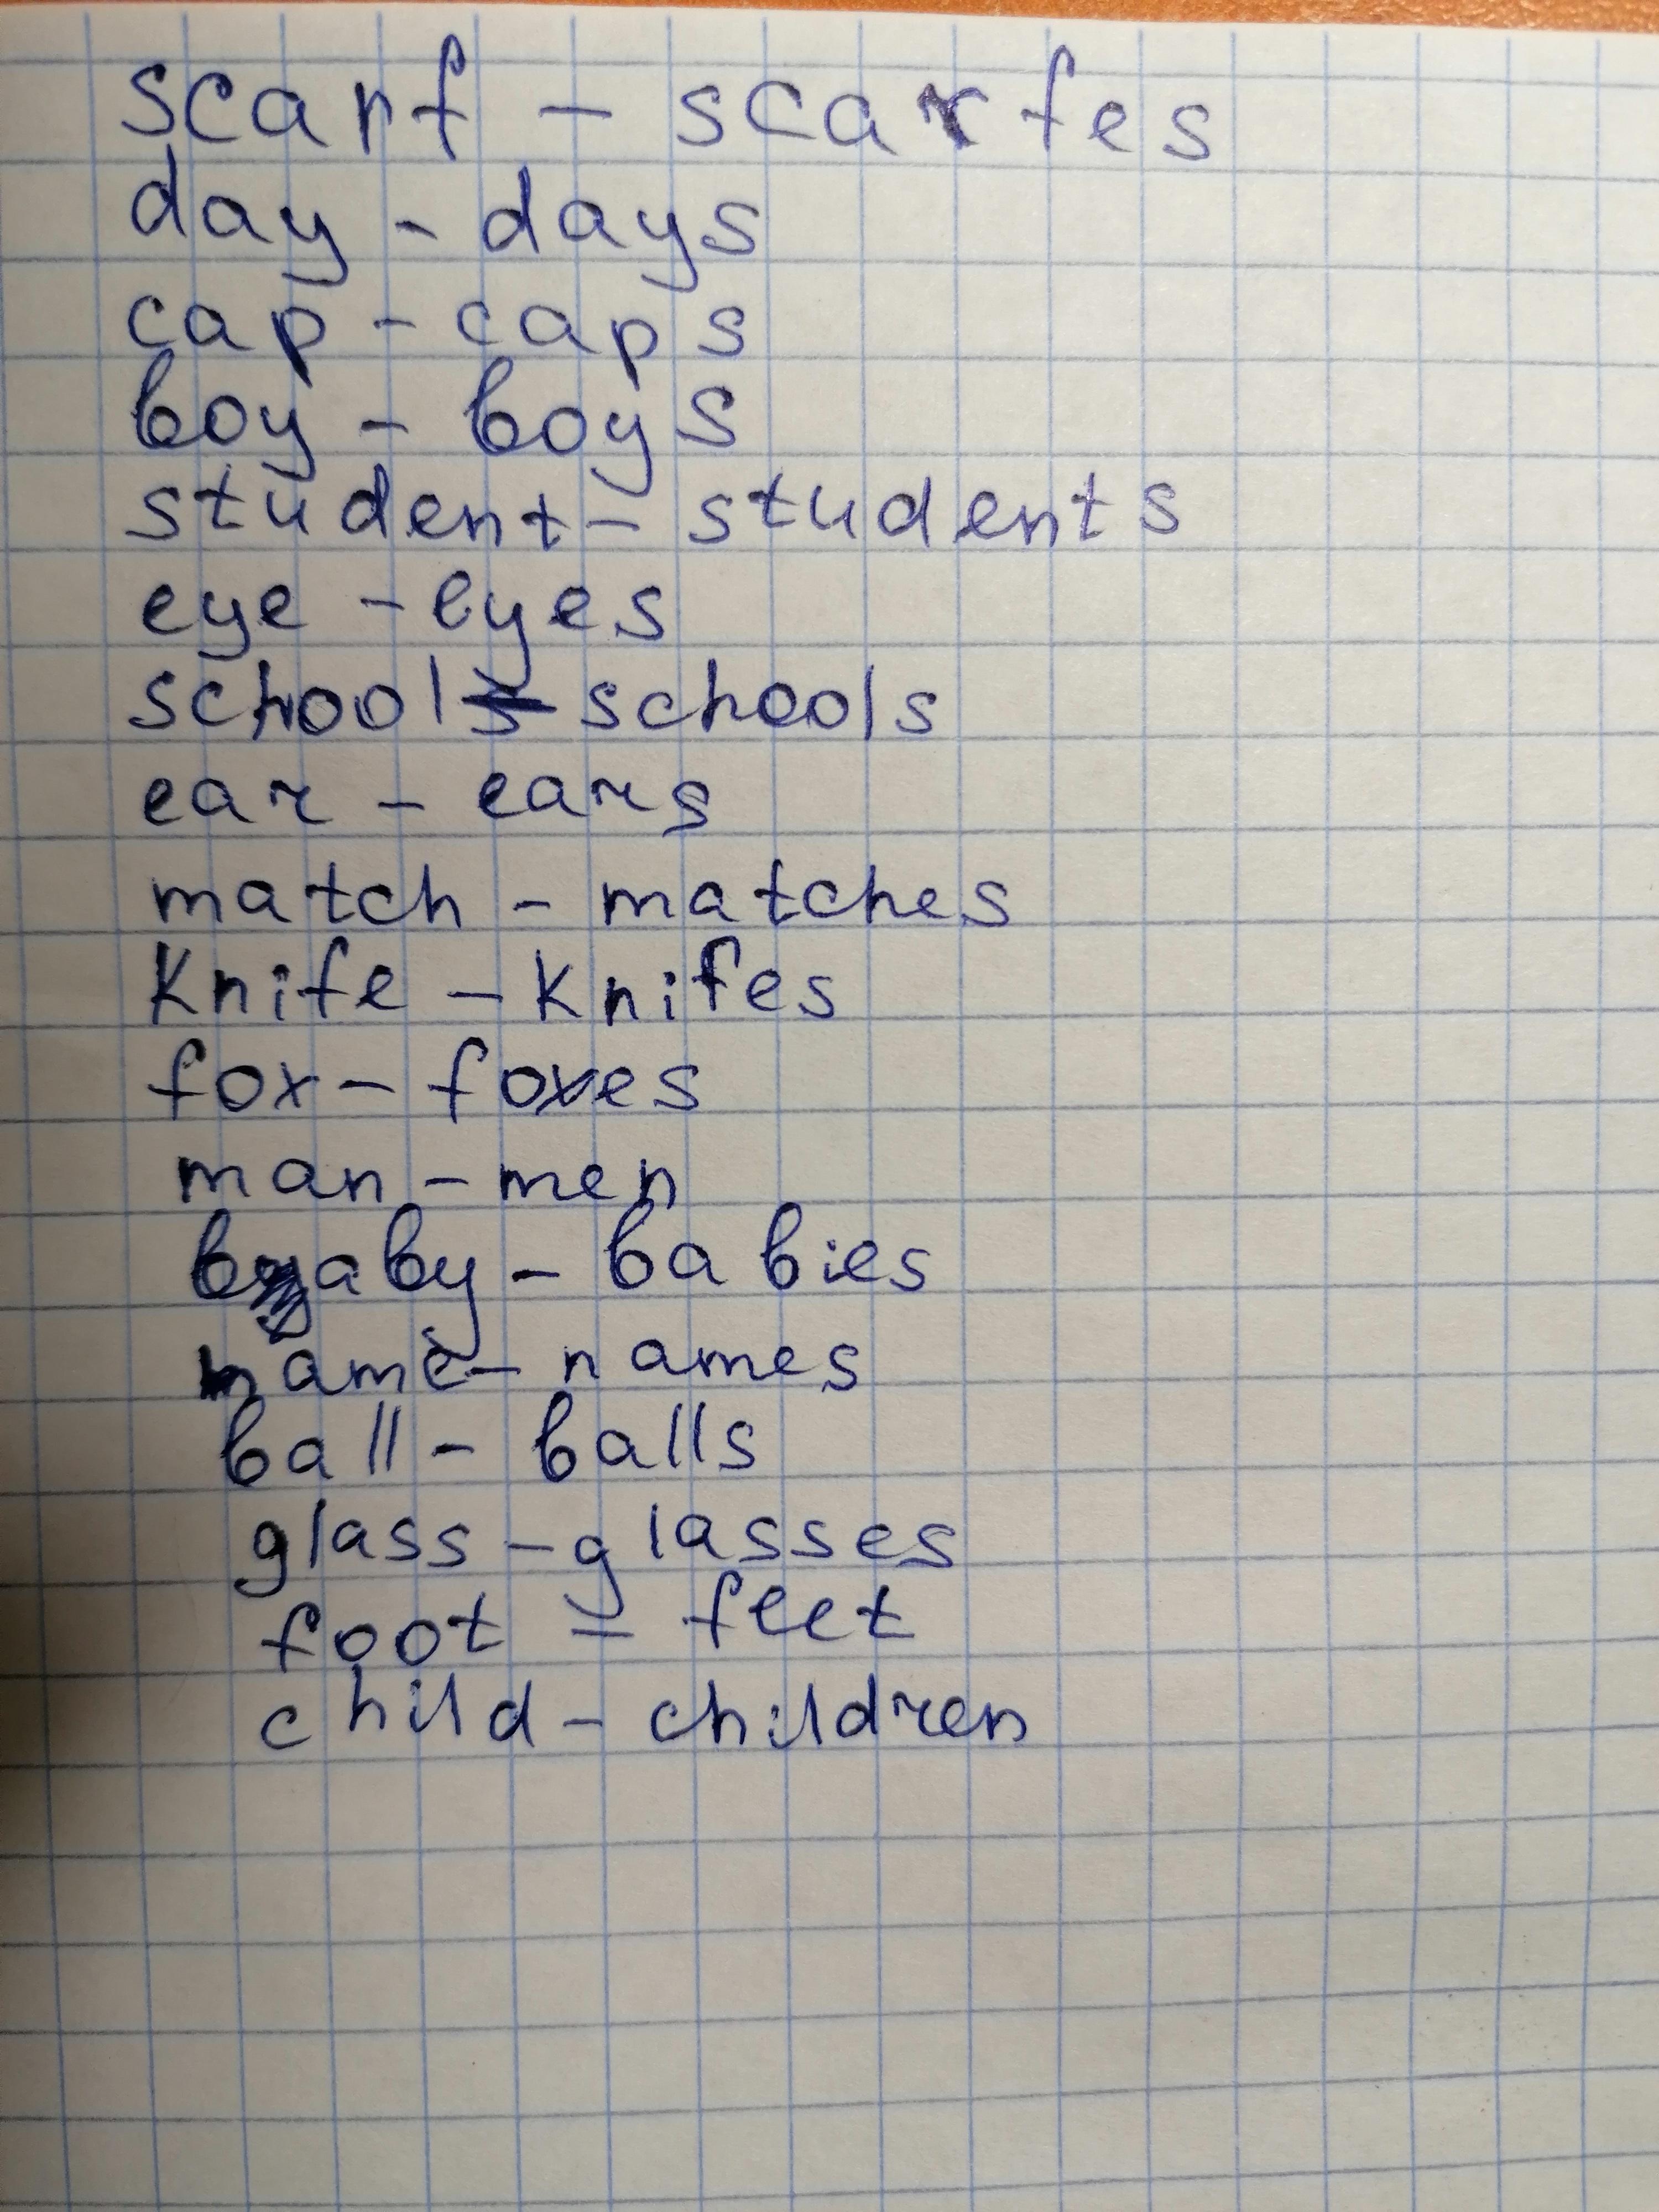 scarf - scarfes
day - days
cap - caps
boy - boys
student - students
eye - eyes
school - schools
ear - ears
match - matches
knife - knifes
fox - foxes
man - men
baby - babies
name - names
ball - balls
glass - glasses
foot - feet
child - children